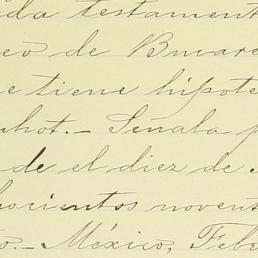 da testament
eo de Buvare
e tiene hipote
uhot.- Señala p
de el diez de
hocientos novent
o.- México, Feb